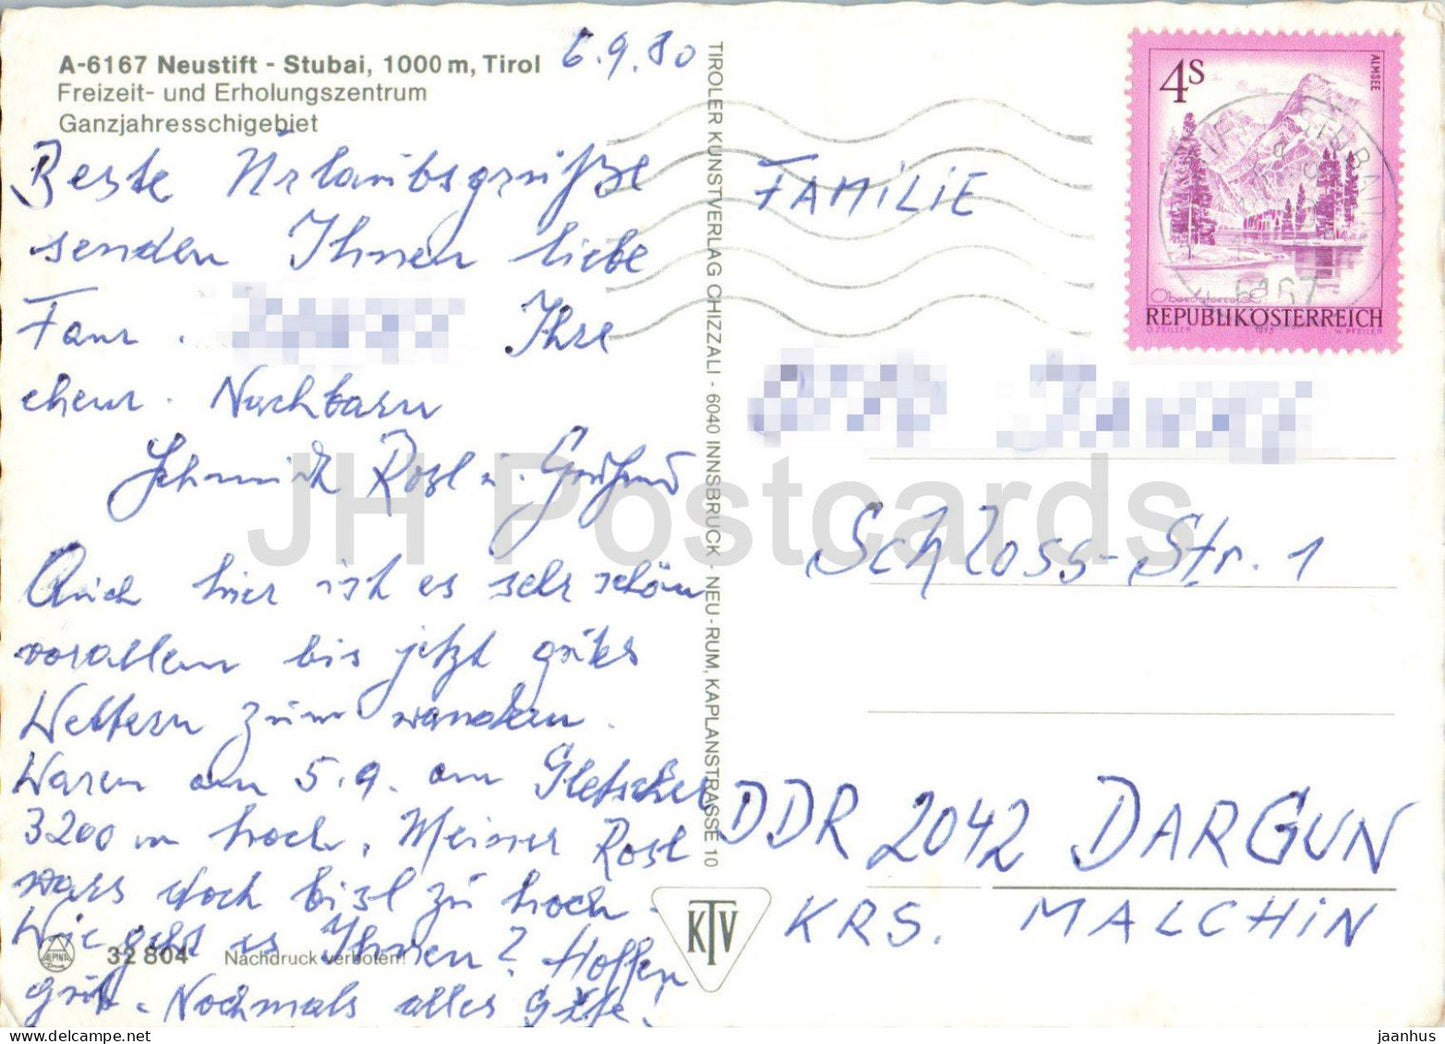 A-6167 Neustift - Stubai, 1000 m, Tirol
Freizeit- und Erholungszentrum
Ganzjahresschigebiet
6.9.80
Beste Urlaubsgrüße
senden Ihnen liebe
Fam. Ihre
ehem. Nachbarn
Schmidt Rosl u.
Auch hier ist es sehr schön
vorallem bis jetzt gutes
Wettern zum wandern.
Waren am 5.9. am Gletscher
3200 m hoch. Meiner Rosl
wars doch bisl zu hoch.
Wie geht es Ihnen? Hoffen
gut. Nochmals alles Gute!
ALPINA
32 804 Nachdruck verboten!
TIROLER KUNSTVERLAG CHIZZALI - 6040 INNSBRUCK - NEU-RUM, KAPLANSTRASSE 10
KTV
4S
ALMSEE
Oberösterreich
REPUBLIK ÖSTERREICH
O. ZEILLER 1973 W. PFEILER
6167
FAMILIE
SCHLOSS-Str. 1
DDR 2042 DARGUN
KRS. MALCHIN
JH Postcards
https://www.ebay.com/str/jhpostcards
jaanhus